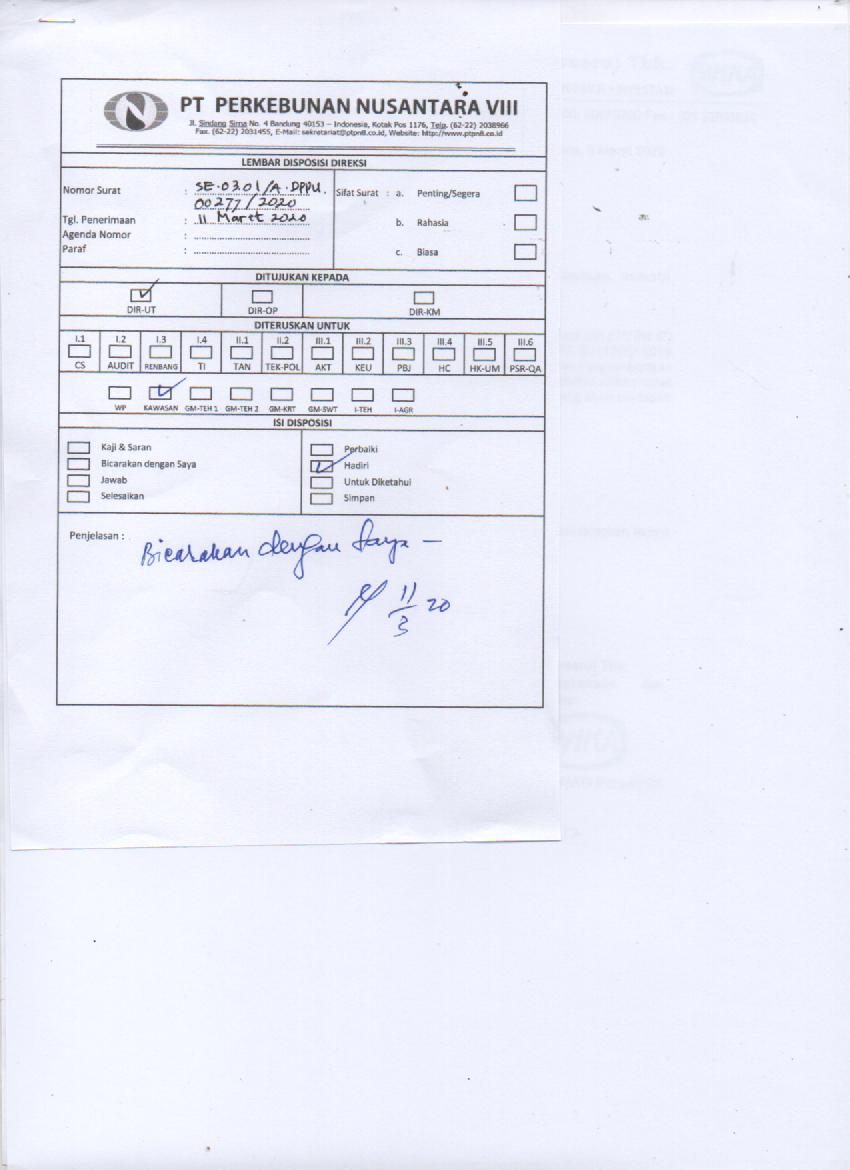 PT PERKEBUNAN NUSANTARA VIII
Jl. Sindang Sirna No. 4 Bandung 40153 – Indonesia, Kotak Pos 1176, Telp. (62-22) 2038966
Fax. (62-22) 2031455, E-Mail: sekretariat@ptpn8.co.id, Website: http://www.ptpn8.co.id
LEMBAR DISPOSISI DIREKSI
Nomor Surat : SE.0301/A.DPPU. Sifat Surat : a. Penting/Segera
00277/2020
Tgl. Penerimaan : 11 Maret 2020 b. Rahasia
Agenda Nomor :
Paraf : c. Biasa
DITUJUKAN KEPADA
DIR-UT DIR-OP DIR-KM
DITERUSKAN UNTUK
I.1 I.2 I.3 I.4 II.1 II.2 III.1 III.2 III.3 III.4 III.5 III.6
CS AUDIT RENBANG TI TAN TEK-POL AKT KEU PBJ HC HK-UM PSR-QA
WP KAWASAN GM-TEH 1 GM-TEH 2 GM-KRT GM-SWT I-TEH I-AGR
ISI DISPOSISI
Kaji & Saran Perbaiki
Bicarakan dengan Saya Hadiri
Jawab Untuk Diketahui
Selesaikan Simpan
Penjelasan :
Bicarakan dengan Saya –
11/3 20